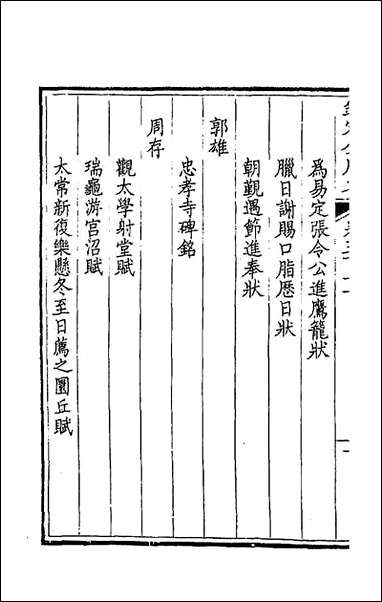 為易定張令公進鷹籠狀
臘日謝賜口脂歴日狀
朝覲遇節進奉狀
郭雄
忠孝寺碑銘
周存
觀太學射堂賦
瑞龜游宫沼賦
太常新復樂懸冬至日薦之圜丘賦